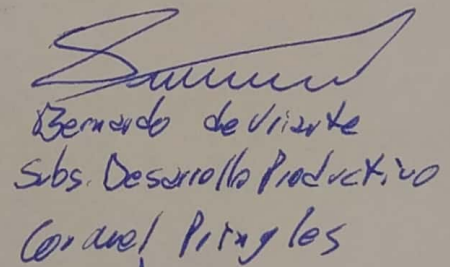 Bernardo de Uriarte
Subs. Desarrollo Productivo
Coronel Pringles